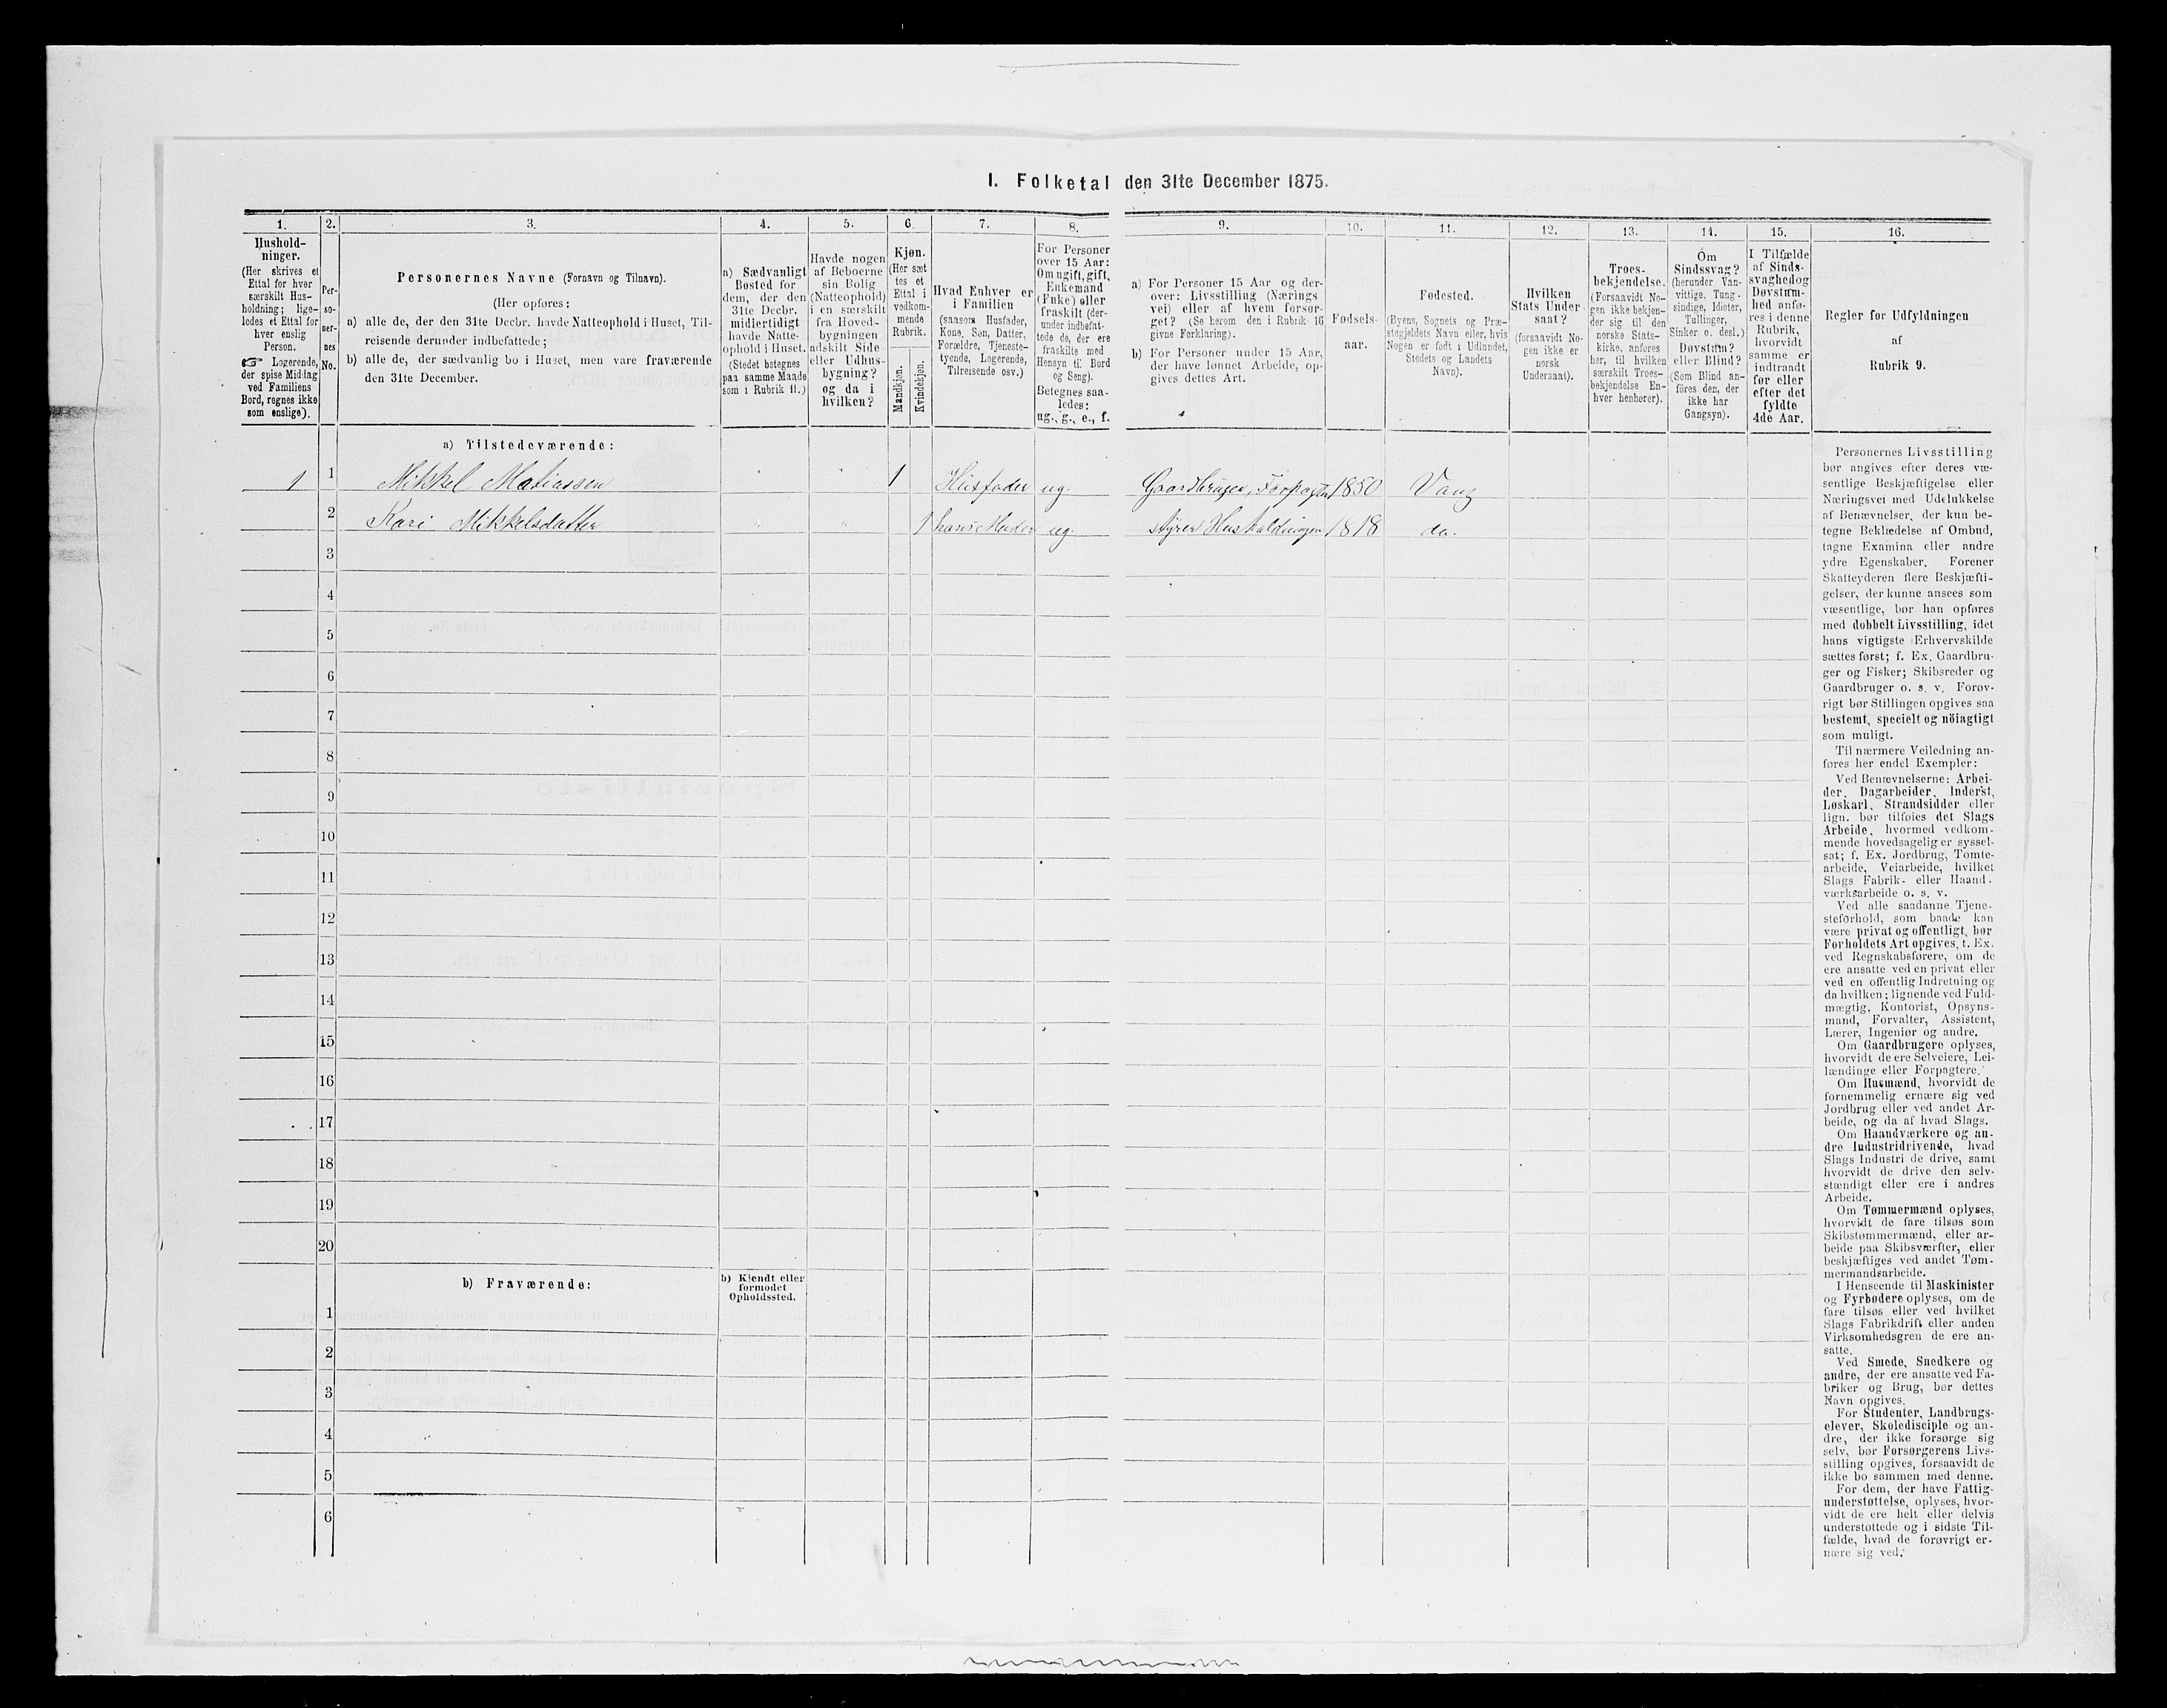 I. Folketal den 31te December 1875.
1.
Hushold-
ninger.
(Her skrives et
Ettal for hver
særskilt Hus-
holdning; lige-
ledes et Ettal for
hver enslig
Person.
☞ Logerende,
der spise Middag
ved Familiens
Bord, regnes ikke
som enslige).
2.
Per-
so-
ner-
nes
No.
3.
Personernes Navne (Fornavn og Tilnavn).
(Her opføres:
a) alle de, der den 31te Decbr. havde Natteophold i Huset, Til-
reisende derunder indbefattede;
b) alle de, der sædvanlig bo i Huset, men vare fraværende
den 31te December.
4.
a) Sædvanligt
Bosted for
dem, der den
31te Decbr.
midlertidigt
havde Natte-
ophold i Huset.
(Stedet betegnes
paa samme Maade
som i Rubrik 11.)
5.
Havde nogen
af Beboerne
sin Bolig
(Natteophold)
i en særskilt
fra Hoved-
bygningen
adskilt Side
eller Udhus-
bygning?
og da i
hvilken?
6.
Kjøn.
(Her sæt
tes et
Ettal i
vedkom-
mende
Rubrik.
Mandkjøn.
Kvindekjøn.
7.
Hvad Enhver er
i Familien
(saasom Husfader,
Kone, Søn, Datter,
Forældre, Tjeneste-
tyende, Logerende,
Tilreisende osv.)
8.
For Personer
over 15 Aar:
Om ugift, gift,
Enkemand
(Enke) eller
fraskilt (der-
under indbefat-
tede de, der ere
fraskilte med
Hensyn til Bord
og Seng).
Betegnes saa-
ledes:
ug., g., e., f.
9.
a) For Personer 15 Aar og der-
over: Livsstilling (Nærings
vei) eller af hvem forsør-
get? (Se herom den i Rubrik 16
givne Forklaring).
b) For Personer under 15 Aar,
der have lønnet Arbeide, op-
gives dettes Art.
10.
Fødsels-
aar.
11.
Fødested.
(Byens, Sognets og Præ-
stegjeldets Navn eller, hvis
Nogen er født i Udlandet,
Stedets og Landets
Navn).
12.
Hvilken
Stats Under-
saat?
(forsaavidt No-
gen ikke er
norsk
Undersaat).
13.
Troes-
bekjendelse.
(Forsaavidt No-
gen ikke bekjen-
der sig til den
norske Stats-
kirke, anføres
her, til hvilken
særskilt Troes-
bekjendelse En-
hver henhører).
14.
Om
Sindssvag?
(herunder Van-
vittige, Tung-
sindige, Idioter,
Tullinger,
Sinker o. desl.)
Døvstum?
eller Blind?
(Som Blind an-
föres den, der
ikke har
Gangsyn).
15.
I Tilfælde
af Sinds-
svaghed og
Døvstum-
hed anfø-
res i denne
Rubrik,
hvorvidt
samme er
indtraadt
før eller
efter det
fyldte
4de Aar.
16.
Regler for Udfyldningen
af
Rubrik 9.
a) Tilstedeværende:
1 1 Mikkel Matiassen " " 1 Husfader ug. Gaardbruger, Forpagter 1850 Vang
2 Kari Mikkelsdatter " " 1 hans Moder ug styrer Husholdningen 1818 do.
3
4
5
6
7
8
9
10
11
12
13
14
15
16
17
18
19
20
b) Fraværende:
b) Kjendt eller
formodet
Opholdssted.
1
2
3
4
5
6
Personernes Livsstilling
bør angives efter deres væ-
sentlige Beskjæftigelse eller
Næringsvei med Udelukkelse
af Benævnelser, der kun be-
tegne Beklædelse af Ombud,
tagne Examina eller andre
ydre Egenskaber. Forener
Skatteyderen flere Beskjæfti-
gelser, der kunne ansees som
væsentlige, bør han opføres
med dobbelt Livsstilling, idet
hans vigtigste Erhvervskilde
sættes først; f. Ex. Gaardbru-
ger og Fisker; Skibsreder og
Gaardbruger o. s. v. Forøv-
rigt bør Stillingen opgives saa
bestemt, specielt og nöiagtigt
som muligt.
Til nærmere Veiledning an-
føres her endel Exempler:
Ved Benævnelserne: Arbei-
der, Dagarbeider, Inderst,
Løskarl, Strandsidder eller
lign. bør tilføies det Slags
Arbeide, hvormed vedkom-
mende hovedsagelig er syssel-
sat; f. Ex. Jordbrug, Tomte-
arbeide, Veiarbeide, hvilket
Slags Fabrik- eller Haand-
værksarbeide o. s. v.
Ved alle saadanne Tjene-
steforhold, som baade kan
være privat og offentligt, bør
Forholdets Art opgives, t. Ex.
ved Regnskabsførere, om de
ere ansatte ved en privat eller
ved en offentlig Indretning og
da hvilken; lignende ved Fuld-
mægtig, Kontorist, Opsyns-
mand, Forvalter, Assistent,
Lærer, Ingeniør og andre.
Om Gaardbrugere oplyses,
hvorvidt de ere Selveiere, Lei-
lændinge eller Forpagtere.
Om Husmænd, hvorvidt de
fornemmelig ernære sig ved
Jordbrug eller ved andet Ar-
beide, og da af hvad Slags.
Om Haandværkere og an-
dre Industridrivende, hvad
Slags Industri de drive, samt
hvorvidt de drive den selv-
stændigt eller ere i andres
Arbeide.
Om Tømmermænd oplyses,
hvorvidt de fare tilsøs som
Skibstømmermænd, eller ar-
beide paa Skibsværfter, eller
beskjæftiges ved andet Tøm-
mermandsarbeide.
I Henseende til Maskinister
og Fyrbødere oplyses, om de
fare tilsøs eller ved hvilket
Slags Fabrikdrift eller anden
Virksomhedsgren de ere an-
satte.
Ved Smede, Snedkere og
andre, der ere ansatte ved Fa-
briker og Brug, bør dettes
Navn opgives.
For Studenter, Landbrugs-
elever, Skoledisciple og an-
dre, der ikke forsørge sig
selv, bør Forsørgerens Livs-
stilling opgives, forsaavidt de
ikke bo sammen med denne.
For dem, der have Fattig-
understøttelse, oplyses, hvor-
vidt de ere helt eller delvis
understøttede og i sidste Til-
fælde, hvad de forøvrigt er-
nære sig ved.